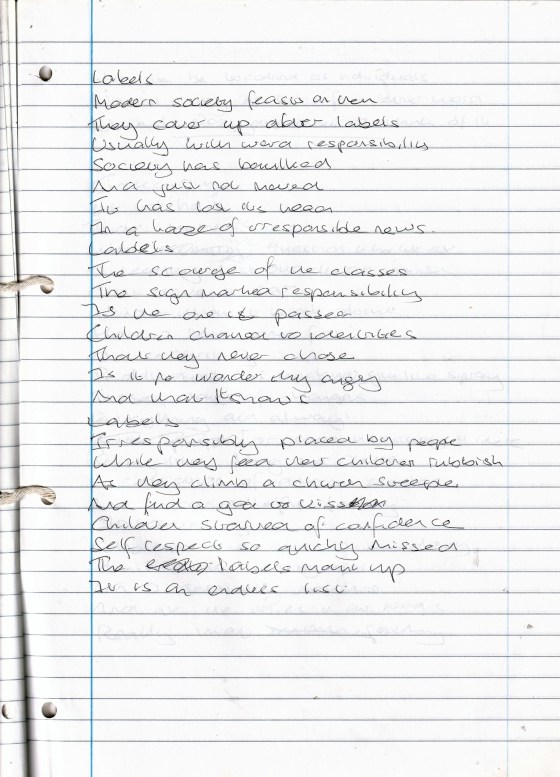 Labels
Modern society feasts on them
They cover up older labels
Usually with word responsibility
Society has baulked
And just not moved
It has lost its head
In a haze of irresponsible news.
Labels
The scourge of the classes
The sign marked responsibility
Is the one is passed
Children chained to identities
That they never chose
Is it no wonder they angry
And that it shows
Labels
Irresponsibly placed by people
While they feed their children rubbish
As they climb a church steeple
And find a god to kiss
Children starved of confidence
Self respect so quickly missed
The labels mount up
It is an endless list